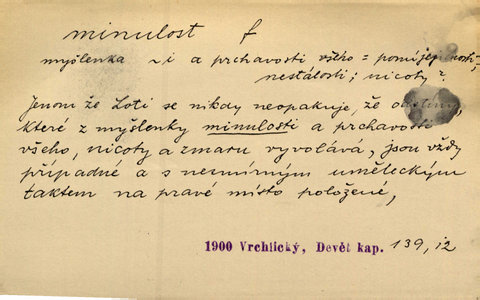 minulost f
myšlenka ~i a prchavosti všeho = pomíjejícnosti,
nestálosti; nicoty?
Jenom že Loti se nikdy neopakuje, že odstíny,
které z myšlenky minulosti a prchavosti
všeho, nicoty a zmaru vyvolává, jsou vždy
případné a s neumírným uměleckým
taktem na pravé místo položené,
1900 Vrchlický, Devět kap. 139, i2